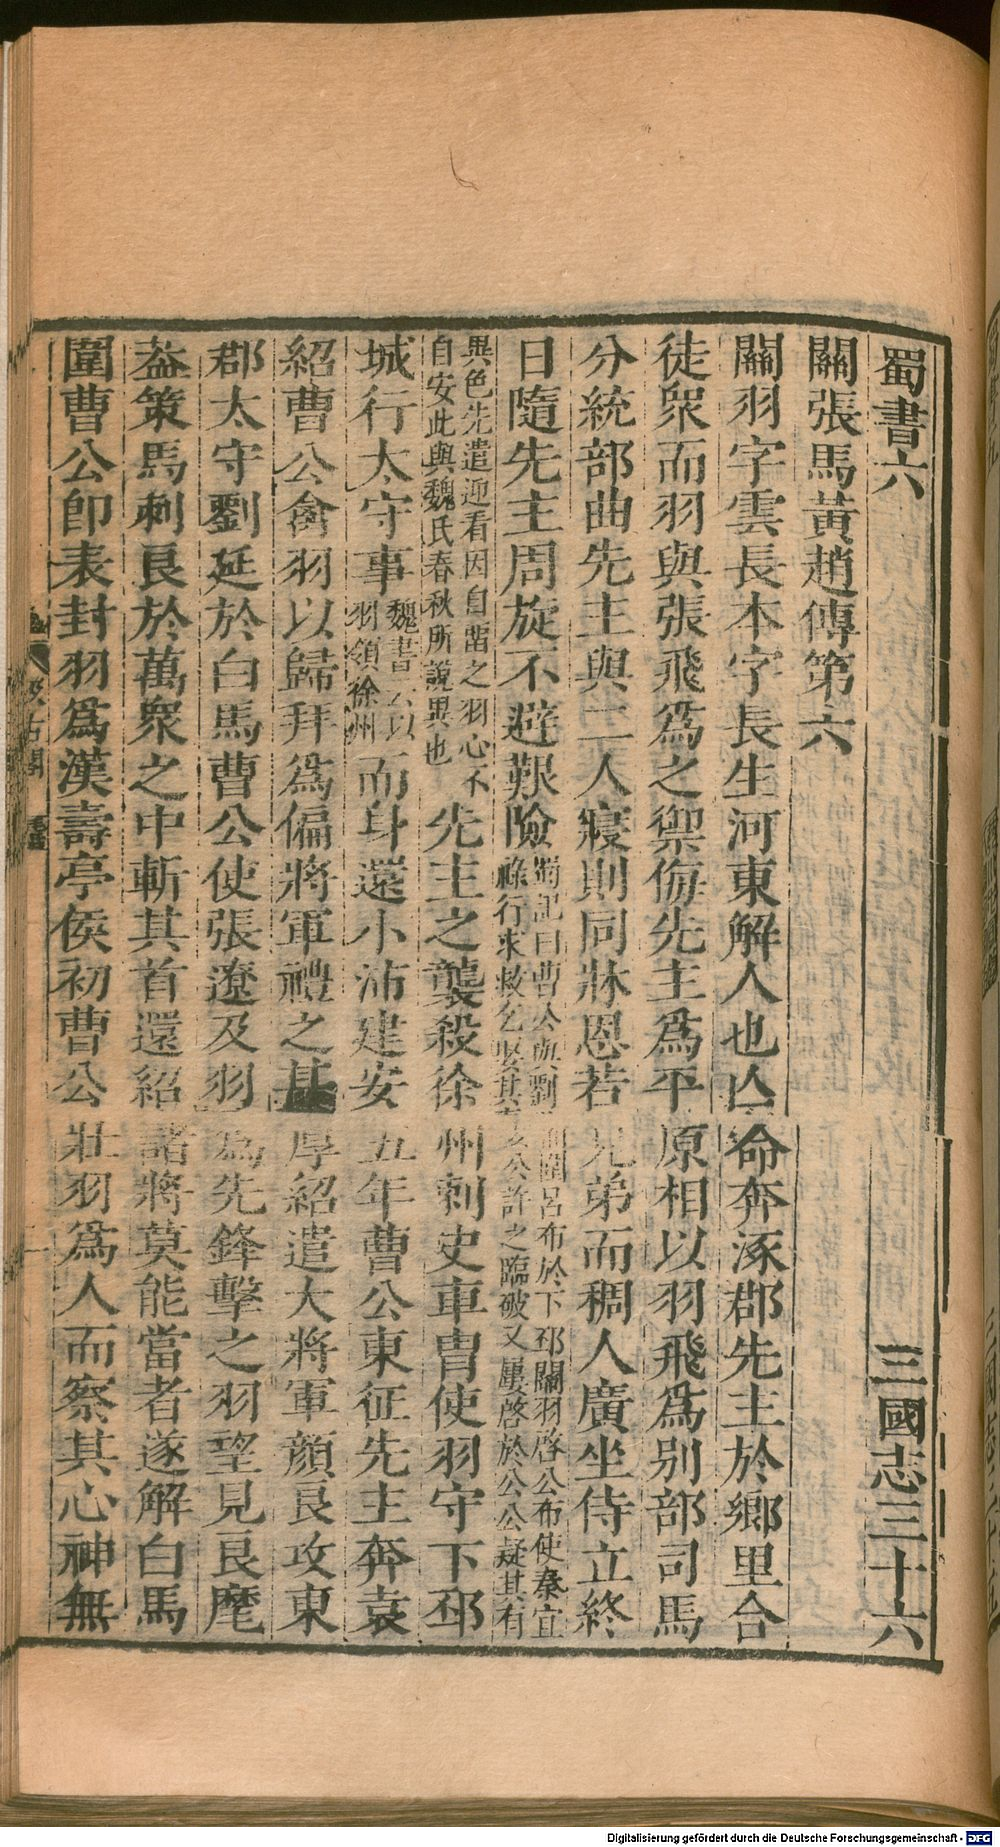 蜀書六 三國志三十六
關張馬黃趙傳第六
關羽字雲長本字長生河東解人也亾命奔涿郡先主於鄉里合
徒衆而羽與張飛爲之禦侮先主爲平原相以羽飛爲別部司馬
分統部曲先主與二人寢則同牀恩若兄弟而稠人廣坐侍立終
日隨先主周旋不避艱險
蜀記曰曹公與劉備圍呂布於下邳關羽啓公布使秦宜
祿行求救乞娶其妻公許之臨破又屢啓於公公疑其有
異色先遣迎看因自畱之羽心不
自安此與魏氏春秋所說異也
先主之襲殺徐州刺史車冑使羽守下邳
城行太守事
魏書云以
羽領徐州
而身還小沛建安五年曹公東征先主奔袁
紹曹公禽羽以歸拜爲偏將軍禮之甚厚紹遣大將軍顏良攻東
郡太守劉延於白馬曹公使張遼及羽爲先鋒擊之羽望見良麾
葢策馬刺良於萬衆之中斬其首還紹諸將莫能當者遂解白馬
圍曹公卽表封羽爲漢壽亭侯初曹公壯羽爲人而察其心神無
汲古閣
毛氏
Digitalisierung gefördert durch die Deutsche Forschungsgemeinschaft - DFG